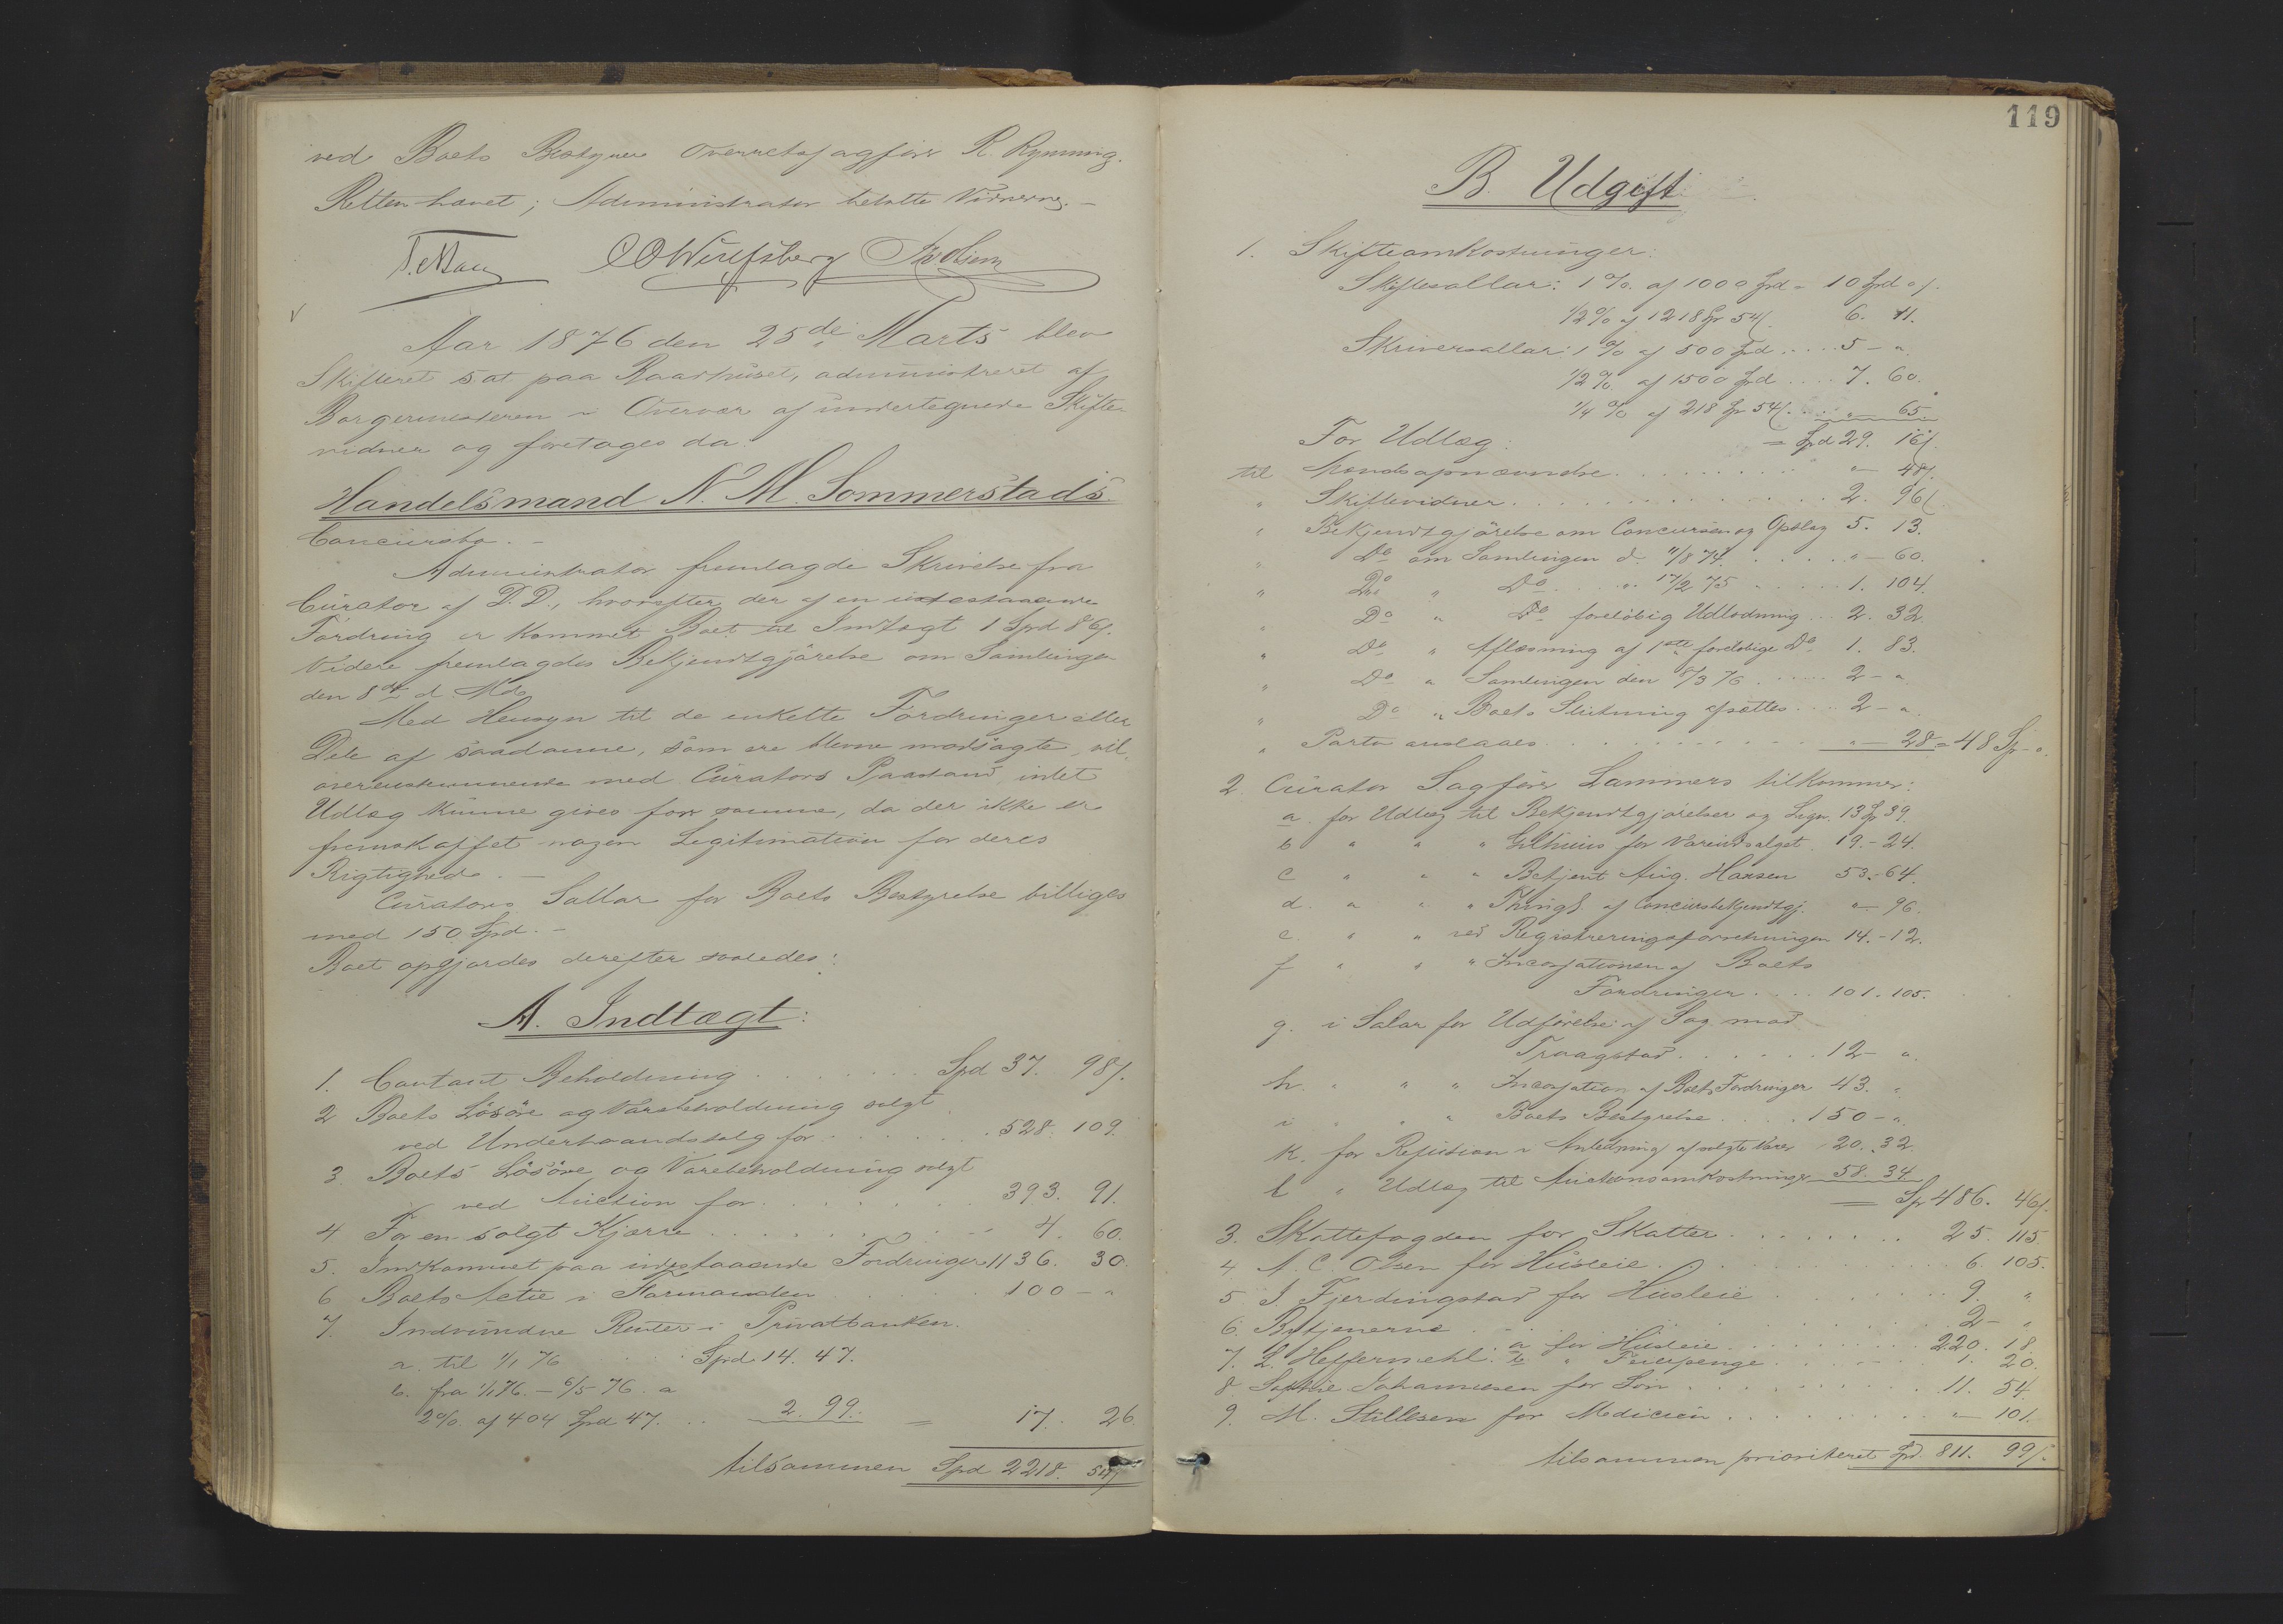 ved Boets Bestyrer Overretssagfører R. Rynning.
Retten hævet; Administrator betalte Vidnerne. –
C O Wulfsberg
Aar 1876 den 25de Marts blev
Skifteret sat paa Raadhuset, administreret af
Borgermesteren i Overvær af undertegnede Skifte-
vidner og foretoges da:
Handelsmand N. M. Sommerstads
Concursbo. –
Administrator fremlagde Skrivelse fra
Curator af D.D., hvorefter der af en udestaaende
Fordring er kommet Boet til Indtægt 1 Spd 86 s.
Videre fremlagdes Bekjendtgjörelse om Samlingen
den 8de d. Md.
Med Hensyn til de enkelte Fordringer eller
Dele af saadanne, som ere blevne modsagte, vil,
overensstemmende med Curators Paastand, intet
Udlæg kunne gives for samme, da der ikke er
fremskaffet nogen Legitimation for deres
Rigtighed. –
Curators Sallar for Boets Bestyrelse billiges
med 150 Spd. –
Boet opgjordes derefter saaledes:
A. Indtægt:
1. Contant Beholdning . . . . Spd 37. 98 s.
2 Boets Lösöre og Varebeholdning solgt
ved Underhaandssalg for . . . . 528. 109.
3. Boets Lösöre og Varebeholdning solgt
ved Auction for . . . . 393. 91.
4 For en solgt Kjærre . . . . 4. 60.
5. Indkommet paa udestaaende Fordringer 1136. 30.
6 Boets Actie i Formanden . . . . 100 – "
7. Indvundne Renter i Privatbanken.
a. til 1/1 76 . . . Spd 14. 47.
b. fra 1/1 76. – 6/5 76. a
2% af 404 Spd 47. . . 2. 99. = 17. 26.
tilsammen Spd 2218. 54 s
119
B. Udgift
1. Skifteomkostninger:
Skiftesallar: 1 % af 1000 Spd = 10 Spd " s.
1/2 % af 1218 Sp 54 s. 6. 11.
Skriversallar: 1 % af 500 Spd . . . . 5 – "
1/2 % af 1500 Spd . . . . 7. 60.
1/4 % af 218 Sp 54 s. . . . " – 65.
For Udlæg: = Spd 29. 16 s.
til Mandsopnævnelse . . . . " – 48 s.
" Skiftevidner . . . . 2. 96 s.
" Bekjendtgjörelse om Concursen og Opslag 5. 13.
" Do om Samlingen d. 11/8 74. . . . " – 60.
" Do " Do . . . " 17/2 75 . . . . 1. 104.
" Do " Do foreløbig Udlodning . . . 2. 32.
" Do " Aflæsning af 1ste foreløbige Do 1. 83.
" Do " Samlingen den 8/3 76 . . . . 2 – "
" Do " Boets Slutning afsættes . . . . 2 – "
" Porto anslaaes . . . . " – 28 = 48 Sp – ".
2. Curator Sagfører Lammers tilkommer:
a. for Udlæg til Bekjendtgjörelser og Lign. 13 Sp 39.
b " " " Huusleie for Vareudsalget. 19. – 24.
c " " " Betjent Aug. Hansen 53. – 64.
d. " " " Thingl. af Concursbekjendtgj. " – 96.
e. " " ved Registreringsforretningen 14. – 12.
f " " " Incassationen af Boets
Fordringer . . . . 101. 105.
g. i Salar for Udförelse af Sag mod
Traagstad . . . . 12 – "
h. " " " Incassation af Boets Fordringer 43. "
i " " " Boets Bestyrelse . . . . 150 – "
k. for Refusion i Anledning af solgte Varer 20. 32
l " Udlæg til Auctionsomkostninger 58. 34
= Sp 486. 46 s.
3. Skattefogden for Skatter . . . . 25. 115.
4 N. C. Olsen for Husleie . . . . 6. 105.
5 J. Fjerdingstad for Husleie . . . . 9. "
6. Betjenerne . . . . 2 – "
7. L. Heffermehl: a for Husleie . . . . 220. 18.
b " Feiepenge . . . . 1. 20.
8. Sophie Johannesen for Lön . . . . 11. 54.
9. M. Stillesen for Medicin . . . . " – 101.
tilsammen prioriteret Spd. 811. 99 s.